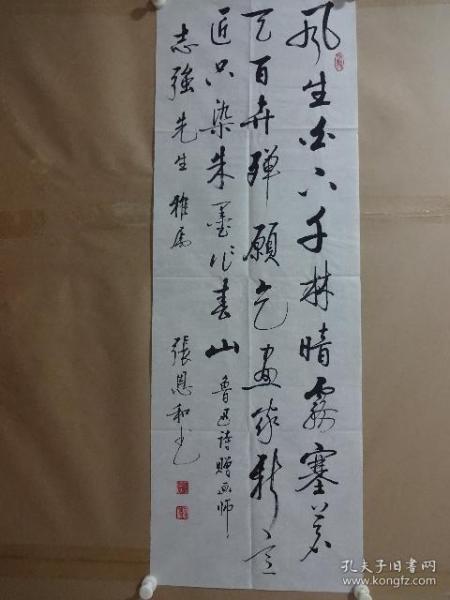 風生白下千林暗霧塞苍
天百卉殫願乞画家新意
匠只染朱墨作春山 魯迅诗赠画师
志強先生雅属 張恩和书
孔夫子旧书网
www.kongfz.com